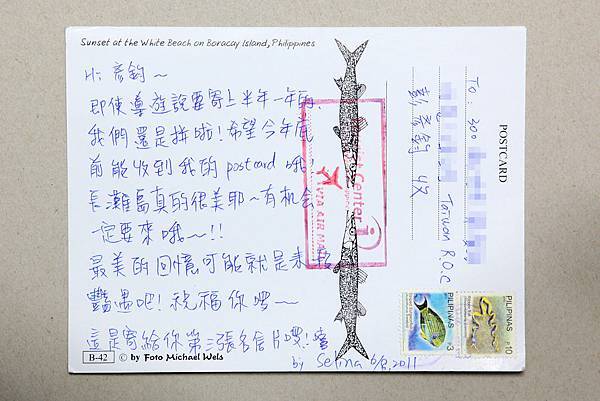 Sunset at the White Beach on Boracay Island, Philippines
Hi 彥鈞~
即使導遊說要寄上半年一年兩,
我們還是拼啦!希望今年底
前能收到我的 postcard 哦!
長灘島真的很美耶~有机会
一定要來哦~!!
最美的回憶可能就是來
豔遇吧!祝福你啰~
這是寄給你第三張名信片啰!
by Selina 6/8, 2011
B-42
© by Foto Michael Wels
POSTCARD
To: 300
Taiwan R.O.C
彭彥鈞 收
Center
VIA AIR MAIL
PILIPINAS
3
PILIPINAS
P10